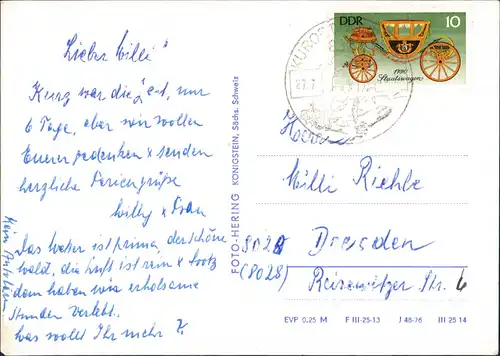 Lieber Willi"
Kurz war die Zeit, nur
6 Tage, aber wir wollen
Eurer gedenken + senden
herzliche Feriengrüße
Willy + Frau
Das Wetter ist prima, der schöne
Wald, die Luft ist rein + trotz
dem haben wir erholsame
Stunden verlebt.
Was wollt Ihr mehr?
Kein Autolärm
FOTO-HERING KÖNIGSTEIN, Sächs. Schweiz
KURORT
27.7
DDR 10
1790
Staatswagen
Herrn
Willi Riehle
8028 Dresden
(8028) Reisewitzer Str. 6
EVP 0,25 M F III-25-13 J 48-76 III 25 14